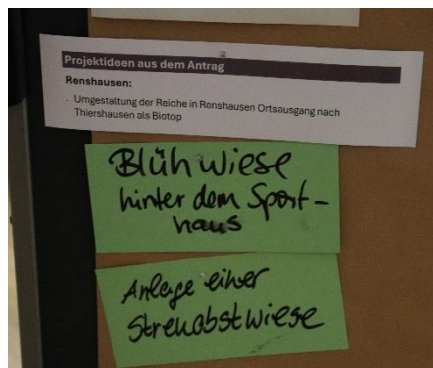 Projektideen aus dem Antrag
Renshausen:
- Umgestaltung der Reiche in Renshausen Ortsausgang nach
Thiershausen als Biotop
Blühwiese
hinter dem Sport-
haus
Anlage einer
Streuobstwiese